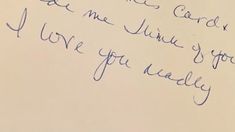 card
me think of you
I love you madly